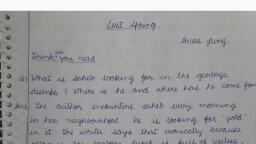 Lost Spring
Anees Jung.
Think as you read
Q1 What is saheb looking for in the garbage
dumps? Where is he and where has he come from
Ans The author encounters saheb every morning
in her neighbourhood. He is looking for 'gold'
in it the writer says that ironically because
garbage dump is full of useless,